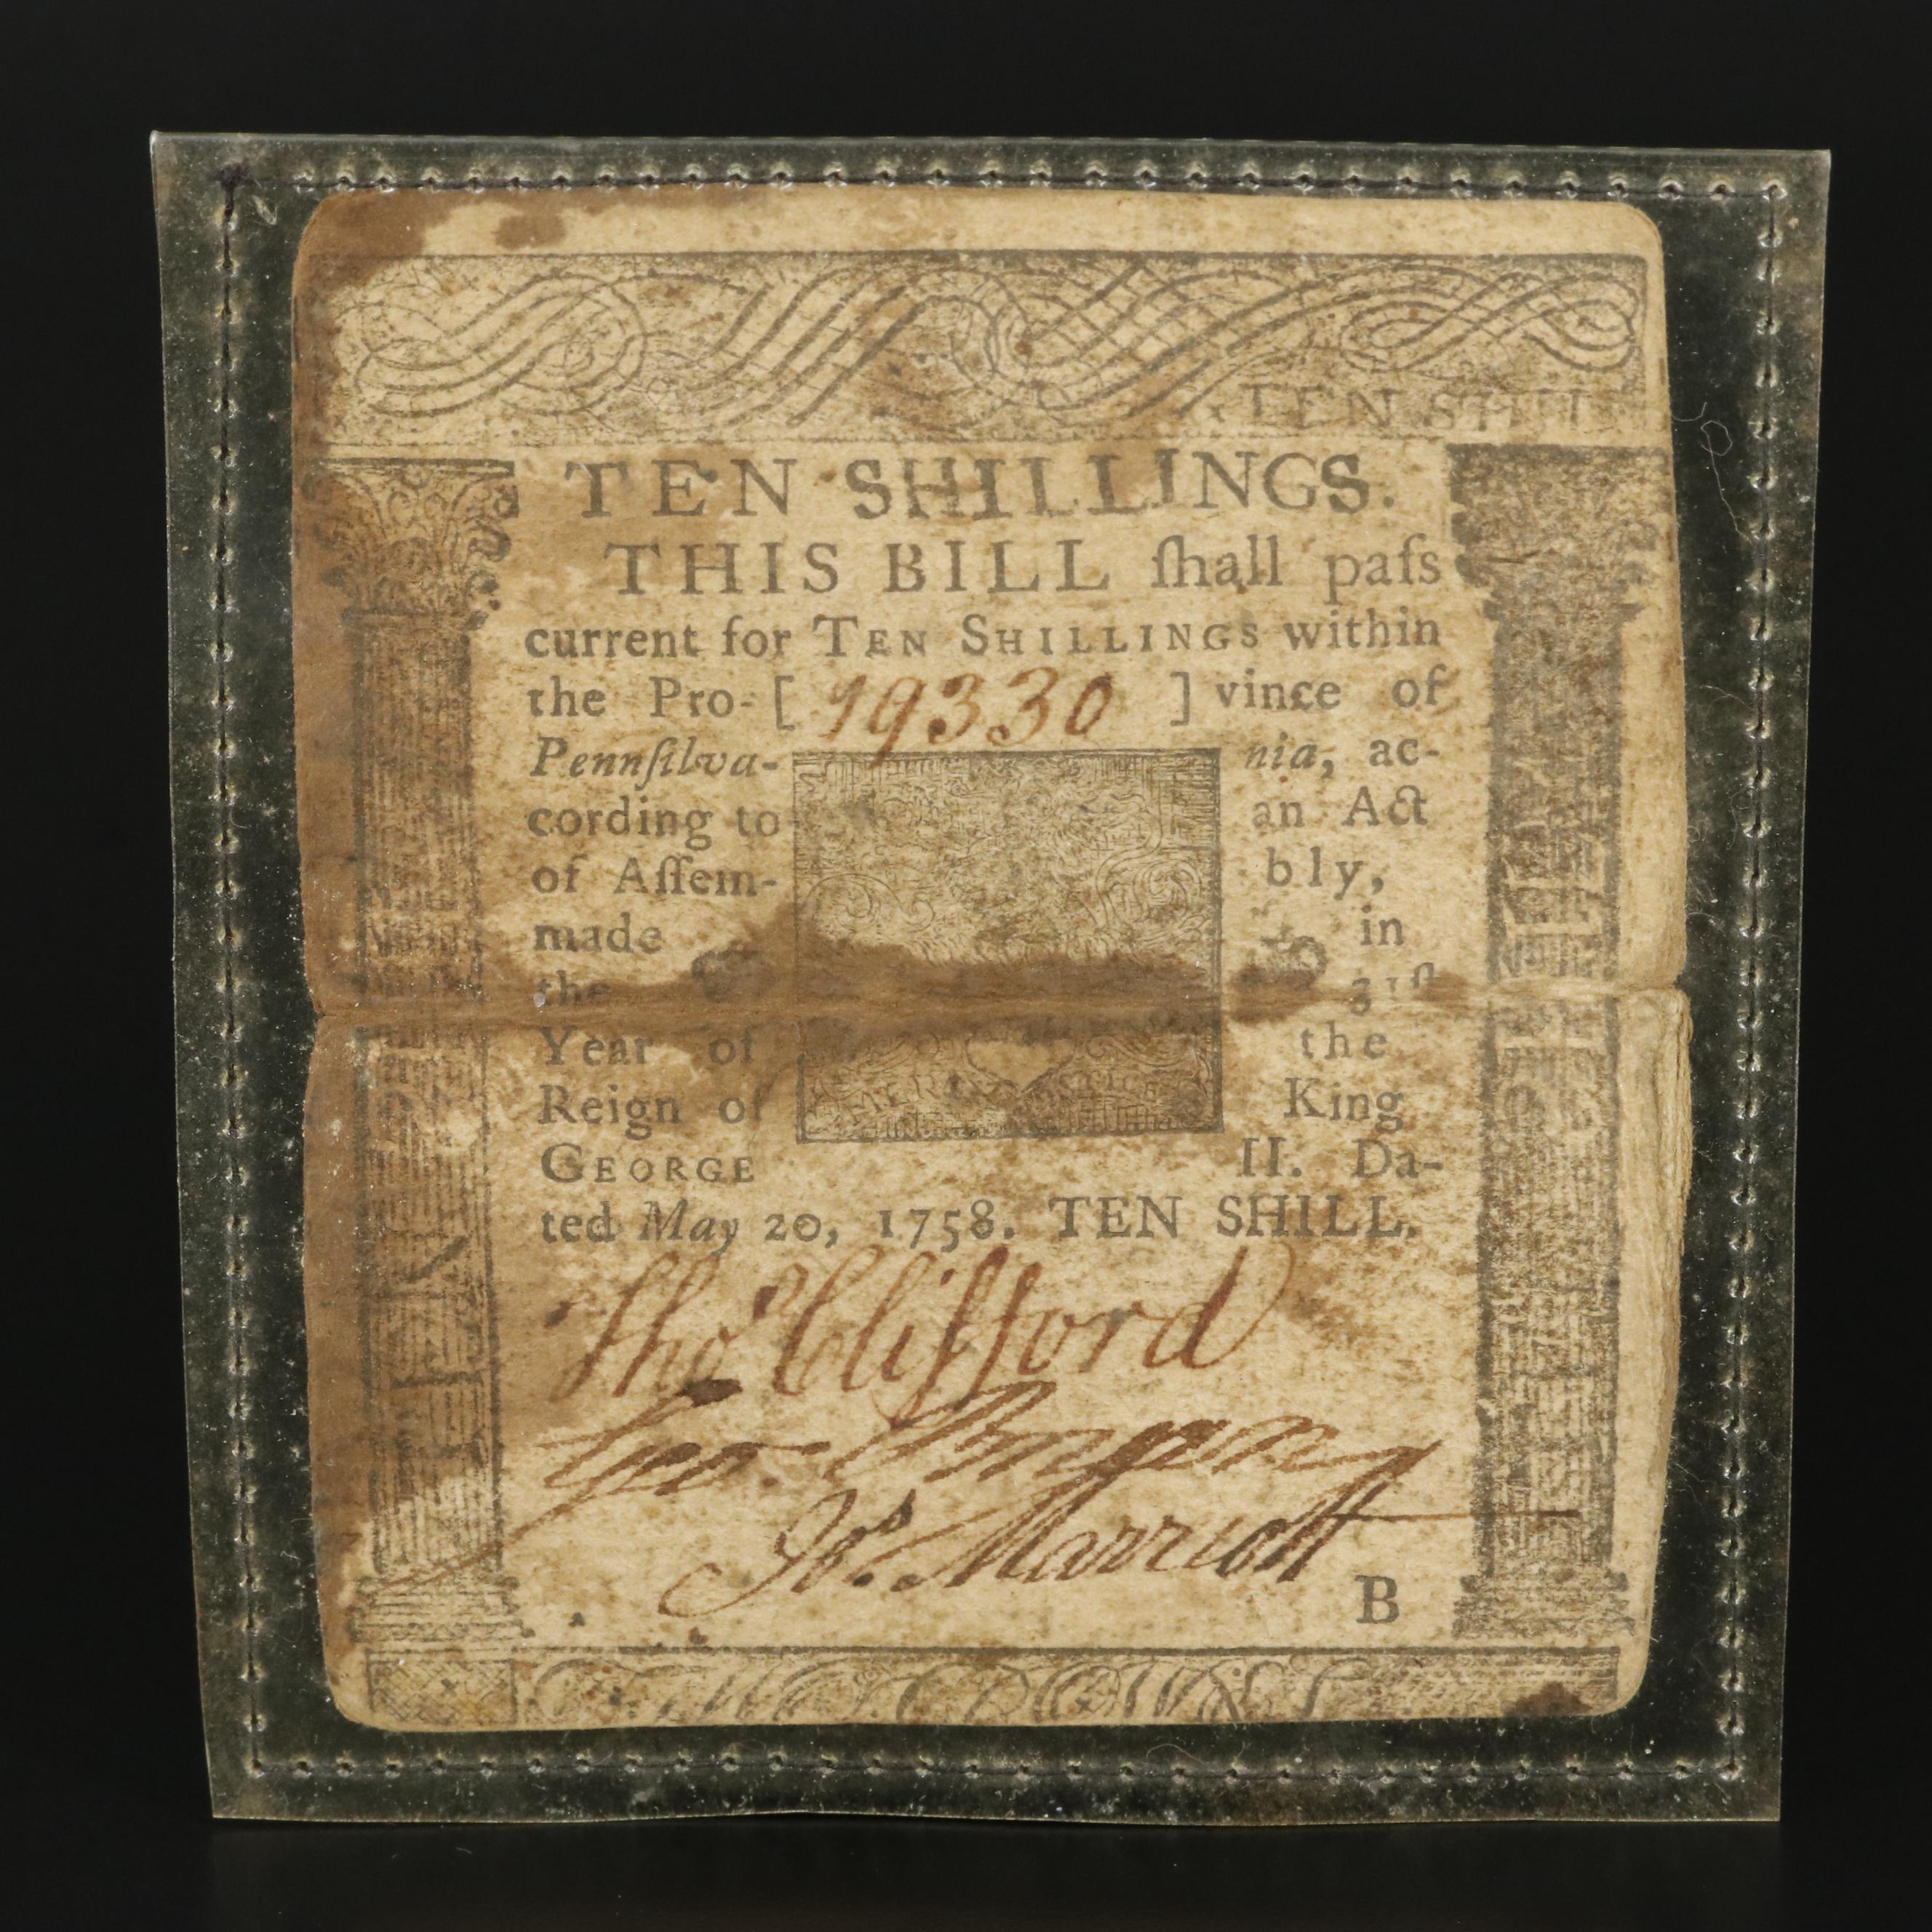 TEN SHILL
TEN SHILLINGS.
THIS BILL ſhall paſs
current for TEN SHILLINGS within
the Pro- [ 19330 ] vince of
Pennſilva- nia, ac-
cording to an Act
of Aſſem- bly,
made in
the 31ſt
Year of the
Reign of King
GEORGE II. Da-
ted May 20, 1758. TEN SHILL.
Thoˢ Clifford
Geo.
Joˢ. Marriott
B
TEN